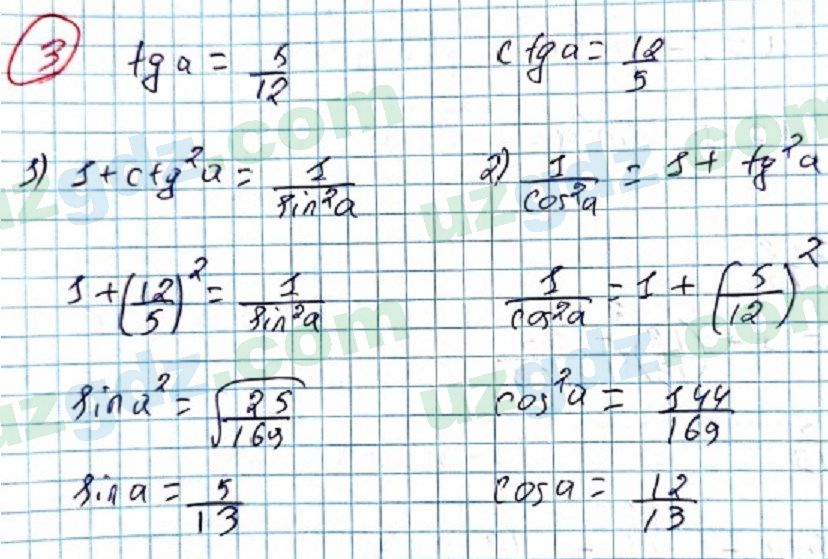 3
tg a = 5/12 ctg a = 12/5
1) 1 + ctg²a = 1/sin²a 2) 1/cos²a = 1 + tg²a
1 + (12/5)² = 1/sin²a 1/cos²a = 1 + (5/12)²
sin a² = √(25/169) cos²a = 144/169
sin a = 5/13 cos a = 12/13
uzgdz.com
uzgdz.com
uzgdz.com
uzgdz.com